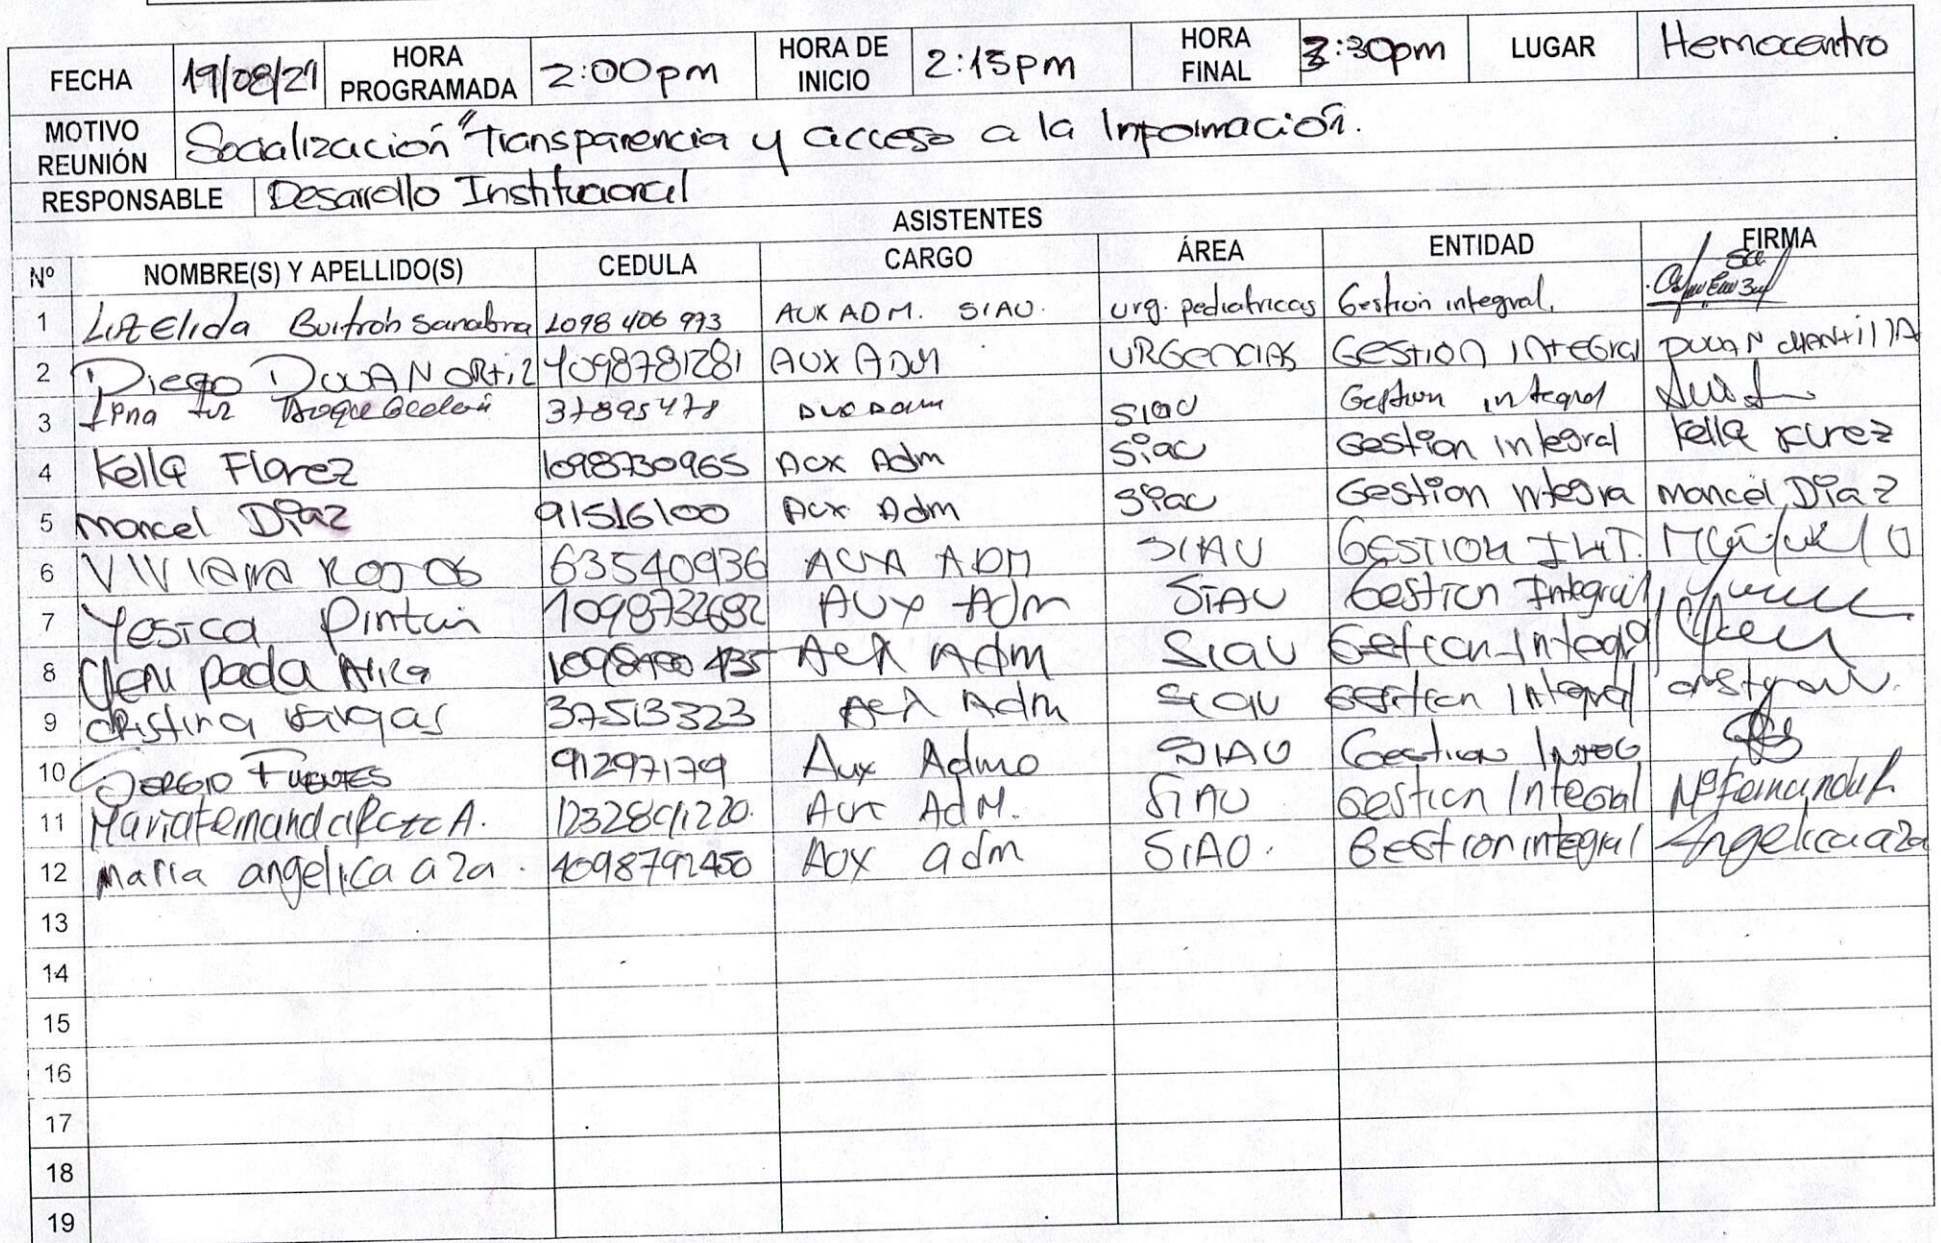 FECHA 19/08/21 HORA PROGRAMADA 2:00pm HORA DE INICIO 2:15pm HORA FINAL 3:30pm LUGAR Hemocentro
MOTIVO REUNIÓN Socialización "Transparencia y acceso a la Información.
RESPONSABLE Desarrollo Institucional
ASISTENTES
Nº NOMBRE(S) Y APELLIDO(S) CEDULA CARGO ÁREA ENTIDAD FIRMA
1 Buitrón Sanabria 1098 406 973 AUX ADM. SIAU. urg. pediatricas Gestion integral.
2 Diego DUVAN ORtiz 1098781281 AUX ADM URGENCIAS GESTION INtegral
3 37895478 SIAU Gestion integral
4 Kelly Florez 1098730965 Aux Adm Siau Gestion integral Kelly
5 Marcel Diaz 91516100 Aux Adm Siau Gestion Marcel Diaz
6 VIVIANA ROJAS 63540936 AUX ADM SIAU GESTION INT.
7 Yesica Pinto 1098732682 AUX Adm SIAU Gestion Integral
8 Adm SIAU
9 Cristina Vargas 37513323 Adm SIAU Gestion Integral
10 SERGIO FUENTES 91297179 Aux Admo SIAU Gestion INTEG
11 Maria Fernanda A. Aux AdM. SIAU Gestion Integral Mª Fernanda
12 Maria angelica aza. 1098792450 AUX adm SIAU. Gestion integral Angelica aza
13
14
15
16
17
18
19